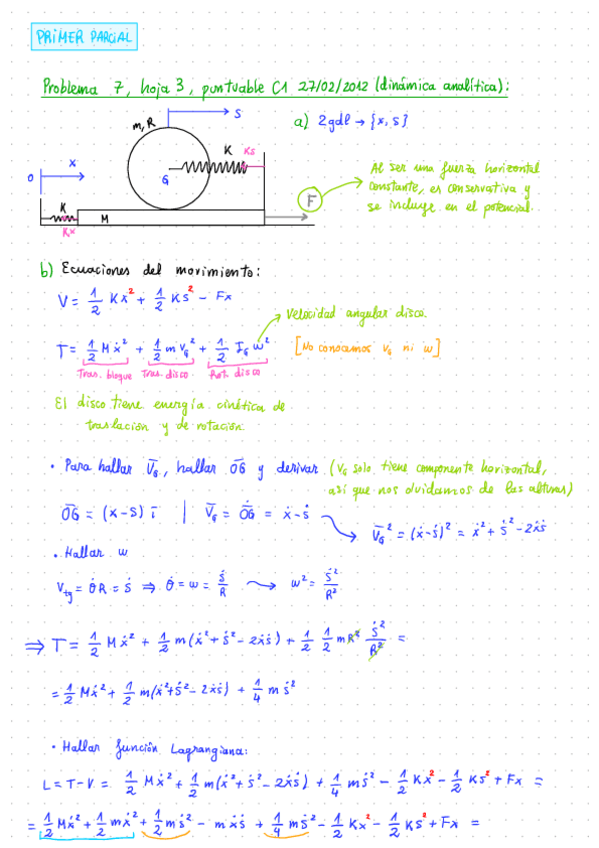 PRIMER PARCIAL
Problema 7, hoja 3, puntuable C1 27/02/2012 (dinámica analítica):
S
m, R
a) 2gdl → {x, s}
K
Ks
x
O
G
Al ser una fuerza horizontal
constante, es conservativa y
se incluye en el potencial.
F
K
M
Kx
b) Ecuaciones del movimiento:
V = 1/2 Kx² + 1/2 Ks² - Fx
Velocidad angular disco.
T = 1/2 Mẋ² + 1/2 m v_G² + 1/2 I_G ω²
[No conocemos v_G ni ω]
Tras. bloque Tras. disco. Rot. disco
El disco tiene energía cinética de
traslación y de rotación.
• Para hallar v̄_G, hallar O̅G̅ y derivar (v_G solo tiene componente horizontal,
así que nos olvidamos de las alturas)
O̅G̅ = (x-s) ī | v̄_G = O̅G̅̇ = ẋ - ṡ
v̄_G² = (ẋ-ṡ)² = ẋ² + ṡ² - 2ẋṡ
• Hallar ω
V_tg = θ̇ R = ṡ ⇒ θ̇ = ω = ṡ/R → ω² = ṡ²/R²
⇒ T = 1/2 Mẋ² + 1/2 m(ẋ² + ṡ² - 2ẋṡ) + 1/2 1/2 mR² ṡ²/R² =
= 1/2 Mẋ² + 1/2 m(ẋ² + ṡ² - 2ẋṡ) + 1/4 mṡ²
• Hallar función Lagrangiana:
L = T - V = 1/2 Mẋ² + 1/2 m(ẋ² + ṡ² - 2ẋṡ) + 1/4 mṡ² - 1/2 Kx² - 1/2 Ks² + Fx =
= 1/2 Mẋ² + 1/2 mẋ² + 1/2 mṡ² - mẋṡ + 1/4 mṡ² - 1/2 Kx² - 1/2 Ks² + Fx =